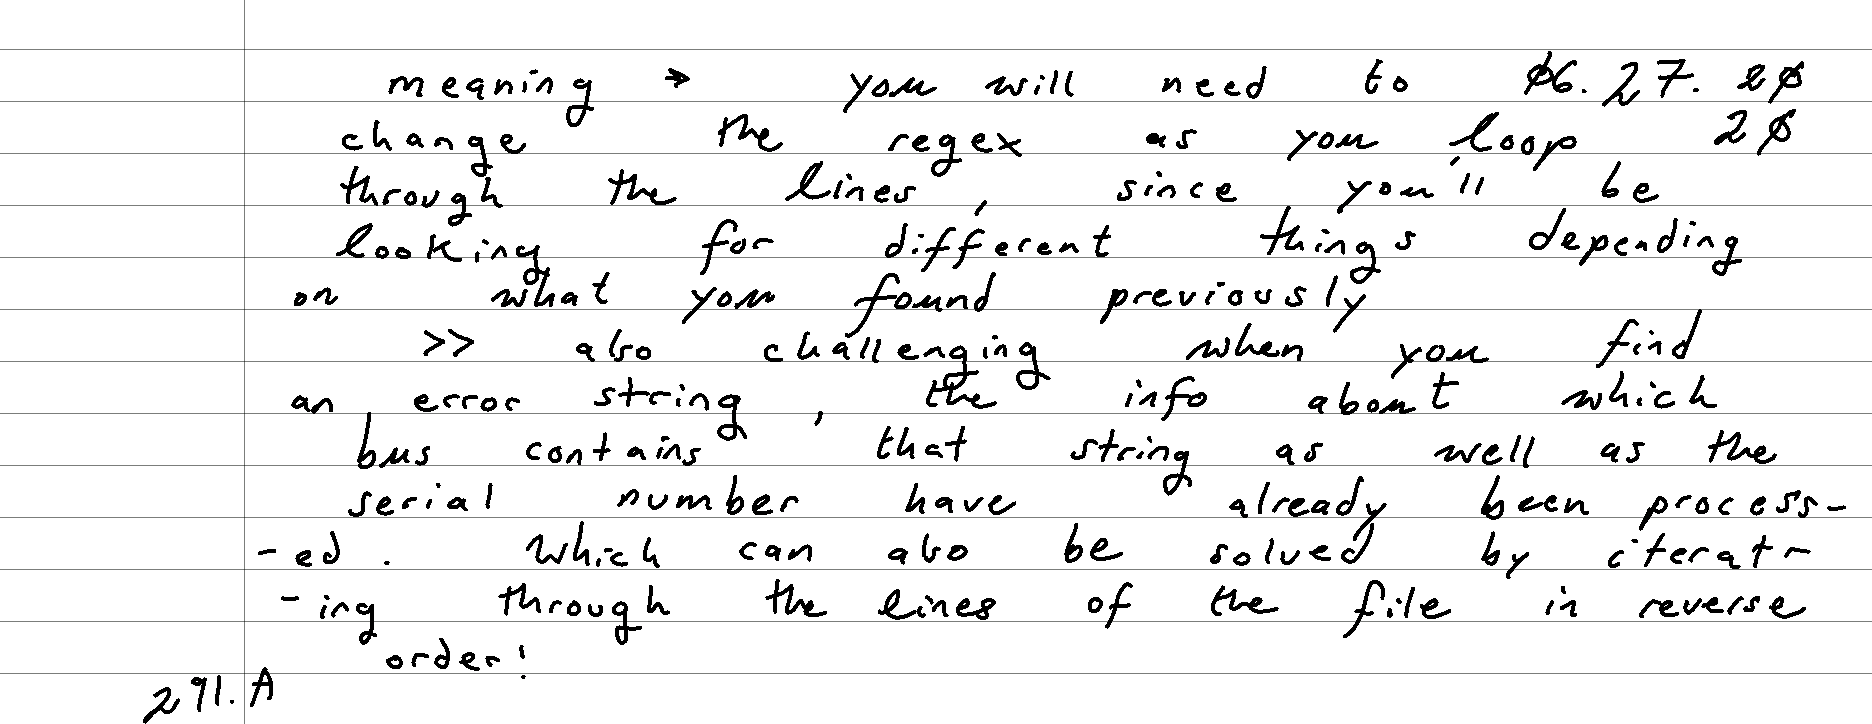 meaning → you will need to 06.27.20
change the regex as you loop 20
through the lines, since you'll be
looking for different things depending
on what you found previously
>> also challenging when you find
an error string, the info about which
bus contains that string as well as the
serial number have already been process-
-ed. Which can also be solved by iterat-
-ing through the lines of the file in reverse
order!
291.A